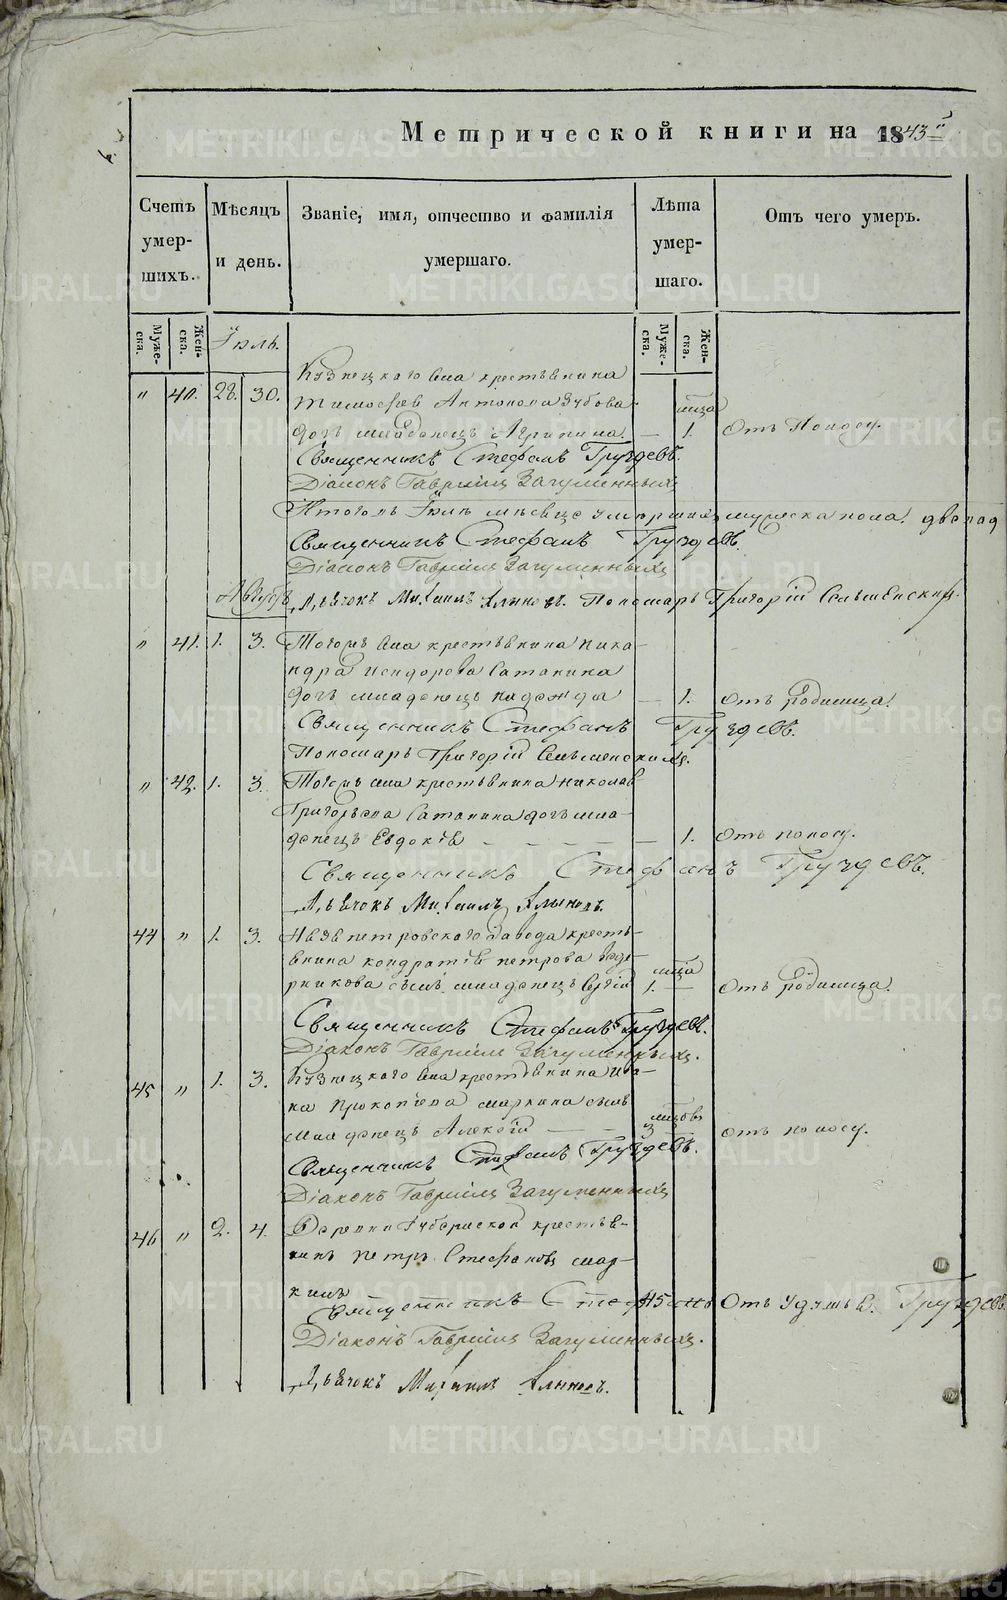 Метрической книги на 1843й
Счетъ умершихъ.
Мѣсяцъ и день.
Званіе, имя, отчество и фамилія умершаго.
Лѣта умершаго.
Отъ чего умеръ.
Мужеска.
Женска.
Мужеска.
Женска.
Іюль.
Кузнецкаго села крестьянина
" 40. 28. 30. Тимофея Антонова Зубова
дочь младенецъ Агрипина. — 1. Отъ Поносу.
Священникъ Стефанъ Груздевъ.
Діаконъ Гавріилъ Загуменныхъ
Итого въ Іюлѣ мѣсяце умершихъ мужеска пола
Священникъ Стефанъ Груздевъ.
Діаконъ Гавріилъ Загуменныхъ
Августъ
Дьячокъ Михаилъ Пономарь Григорій
" 41. 1. 3. Тогожъ села крестьянина Ника-
ндра Исидорова Сатанина
дочь младенецъ надежда — 1. отъ Родимца.
Священникъ Стефанъ Груздевъ.
Пономарь Григорій
" 42. 1. 3. Тогожъ села крестьянина николая
Григорьева Сатанина дочь мла-
денецъ Евдокія — 1. отъ поносу.
Священникъ Стефанъ Груздевъ.
Дьячокъ Михаилъ
44 " 1. 3. петровскаго Завода кресть-
янина кондратія петрова
сынъ младенецъ Сергій 1. — отъ Родимца.
Священникъ Стефанъ Груздевъ.
Діаконъ Гавріилъ Загуменныхъ.
45 " 1. 3. Кузнецкаго села крестьянина
Прокопьева маркина сынъ
младенецъ Алексій — 3 отъ поносу.
Священникъ Стефанъ Груздевъ.
Діаконъ Гавріилъ Загуменныхъ
46 " 2. 4. Деревни Губернской крестья-
нинъ петръ Стефановъ
45 Отъ Удушья.
Священникъ Стефанъ Груздевъ
Діаконъ Гавріилъ Загуменныхъ.
Дьячокъ Михаилъ
METRIKI.GASO-URAL.RU